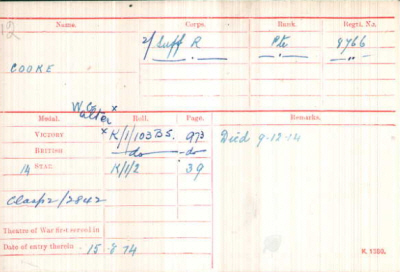 Name. Corps. Rank. Regtl. No.
2/ Suff R Pte 8766
COOKE
W. Co x
alter
Medal. Roll. Page. Remarks.
VICTORY x K/1/103 B5. 973 Died 9-12-14
BRITISH do do
14 STAR K/1/2 39
Clasp 2/2842
Theatre of War first served in
Date of entry therein 15 8 14
K. 1380.